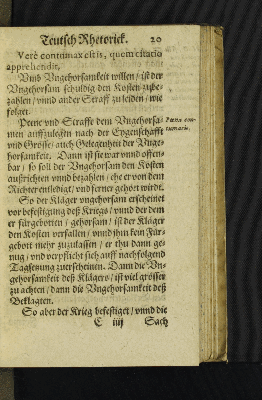 Teutsch Rhetorick. 20
Verè contumax est is, quem citatio
apprehendit.
Vmb Vngehorsamkeit willen / ist der
Vngehorsam schuldig den Kosten zube-
zahlen / vnnd ander Straff zu leiden / wie
folget.
Peene vnd Straffe dem Vngehorsa-
men auffzulegen nach der Eygenschafft
vnd Grösse / auch Gelegenheit der Vnge-
horsamkeit. Dann ist sie war vnnd offen-
bar / so soll der Vngehorsam den Kosten
außrichten vnnd bezahlen / ehe er von dem
Richter entledigt / vnd ferner gehört wirdt.
Pœna con-
tumacie.
So der Kläger vngehorsam erscheinet
vor befestigung deß Kriegs / vnnd der dem
er fürgebotten / gehorsam / ist der Kläger
den Kosten verfallen / vnnd ihm kein Für-
gebott mehr zuzulassen / er thu dann ge-
nug / vnd verpflicht sich auff nachfolgend
Tagsetzung zuerscheinen. Dann die Vn-
gehorsamkeit deß Klägers / ist viel grösser
zu achten / dann die Vngehorsamkeit deß
Beklagten.
So aber der Krieg befestiget / vnnd die
C iiij Sach